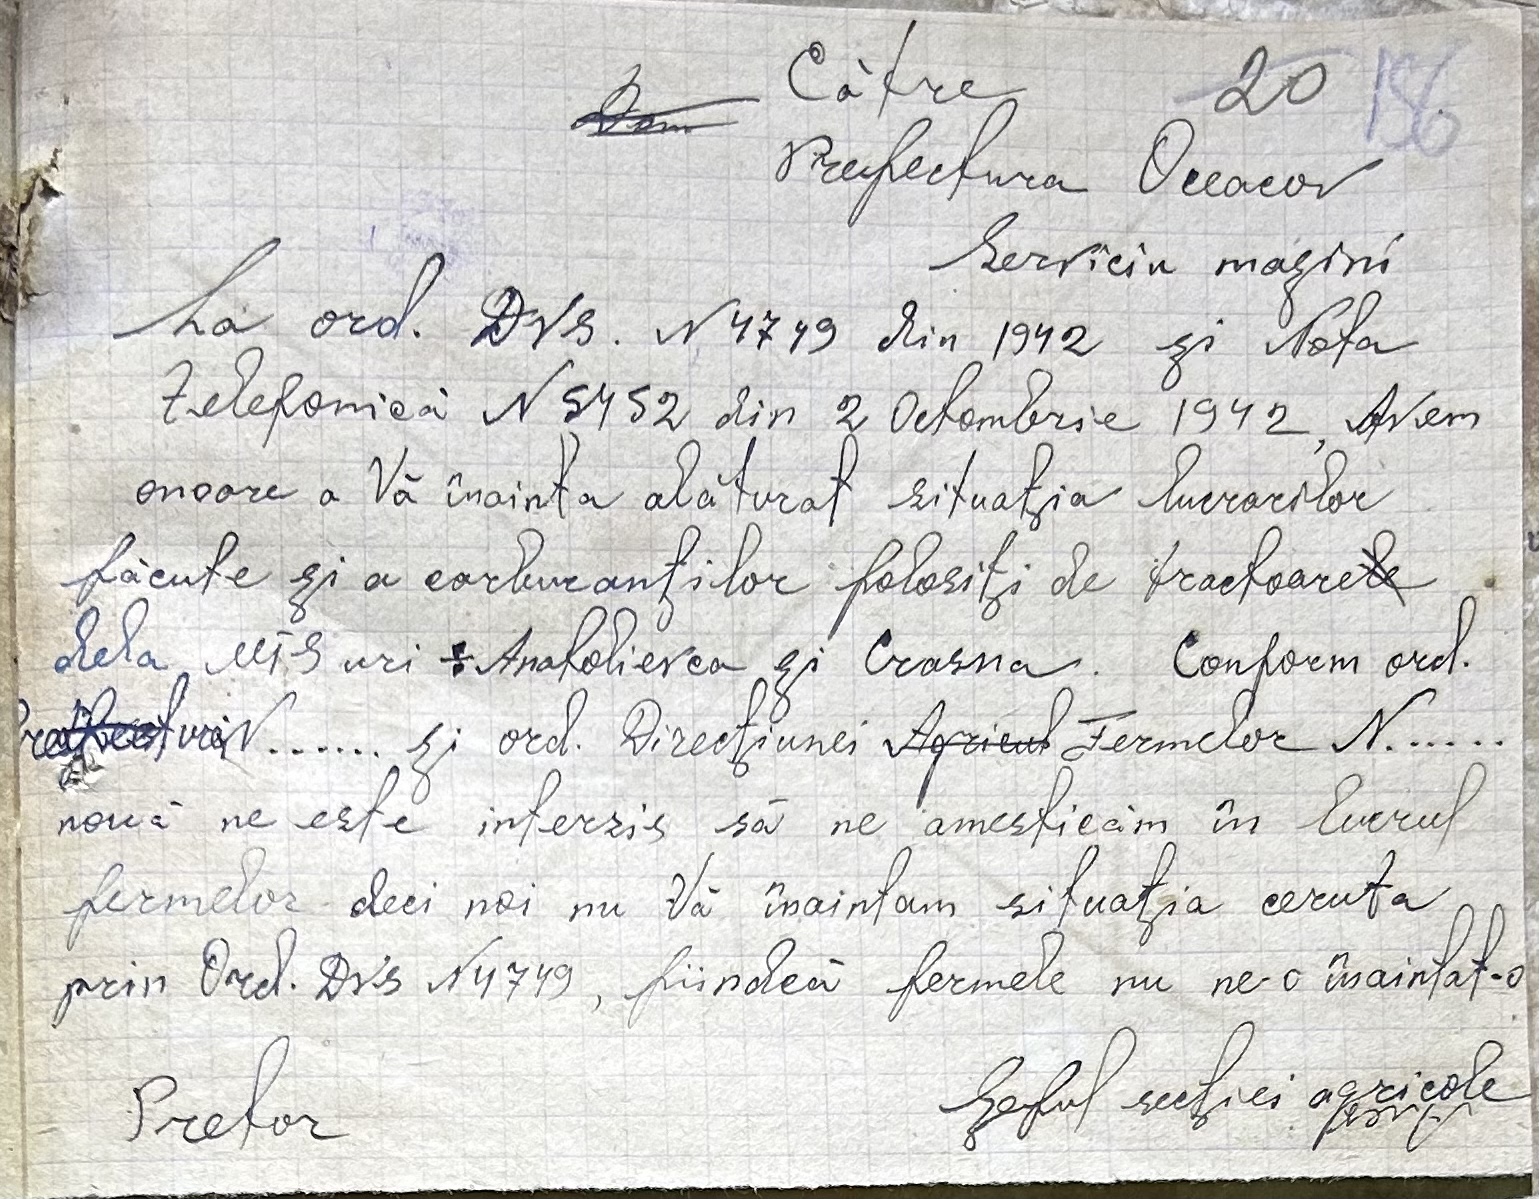 Către 20 156
Prefectura Oceacov
Serviciu mașini
La ord. DVS. N 4749 din 1942 și Nota
Telefonică N 5452 din 2 Octombrie 1942, Avem
onoare a Vă înainta alăturat situația lucrărilor
făcute și a carburanților folosiți de tractoarele
dela MTS uri Anatolievca și Crasna. Conform ord.
Prefecturei N...... și ord. Direcțiunei Agricul Fermelor N......
nouă ne este interzis să ne amesticăm în lucrul
fermelor deci noi nu Vă înaintam situația ceruta
prin Ord. DVS N4749, fiindcă fermele nu ne-o înaintat-o
Pretor Șeful secției agricole